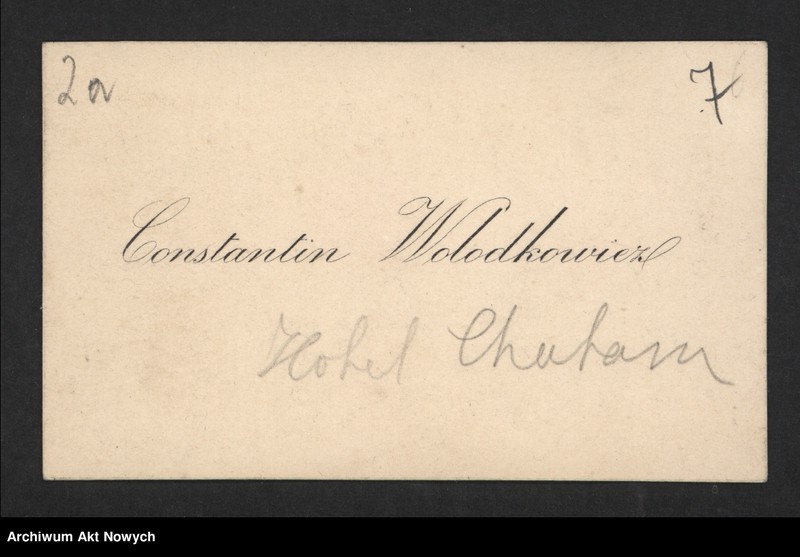 2a
7
Constantin Wolodkowicz
Hotel Chatam
Archiwum Akt Nowych